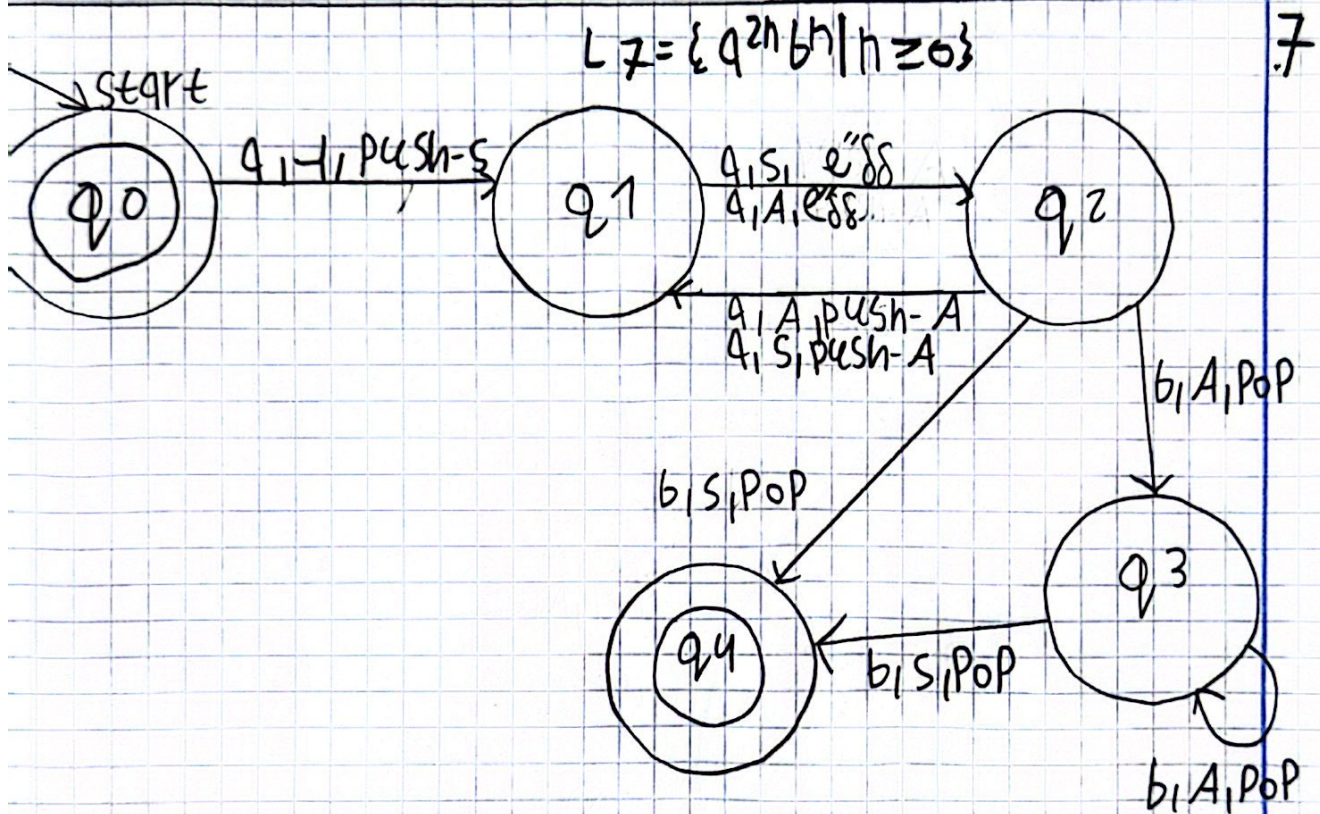 L7={a²ⁿbⁿ|n≥0}
7
start
q0
a,⊣,push-S
q1
a,S,
a,A,
q2
a,A,push-A
a,S,push-A
b,A,POP
b,S,POP
q3
q4
b,S,POP
b,A,POP